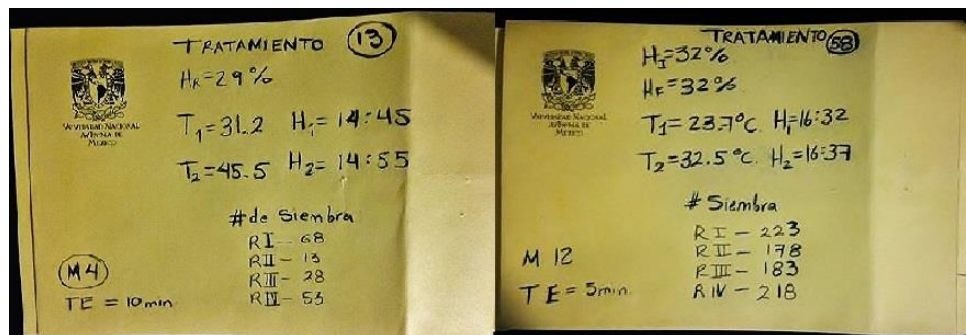 TRATAMIENTO 13
HR=29%
UNIVERSIDAD NACIONAL
AVTONMA DE
MEXICO
T1=31.2 H1=14:45
T2=45.5 H2=14:55
# de Siembra
RI - 68
RII - 13
RIII - 28
RIV - 53
M4
TE = 10 min.
TRATAMIENTO 58
HI=32%
HF=32%
UNIVERSIDAD NACIONAL
AVTONMA DE
MEXICO
T1=23.7°C. H1=16:32
T2=32.5°C. H2=16:37
# Siembra
RI - 223
RII - 178
RIII - 183
RIV - 218
M 12
TE = 5min.